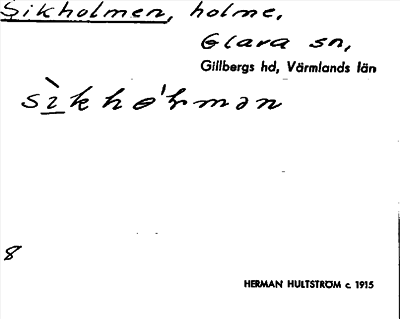 Sikholmen, holme.
Glava sn,
Gillbergs hd, Värmlands län
8
HERMAN HULTSTRÖM c. 1915